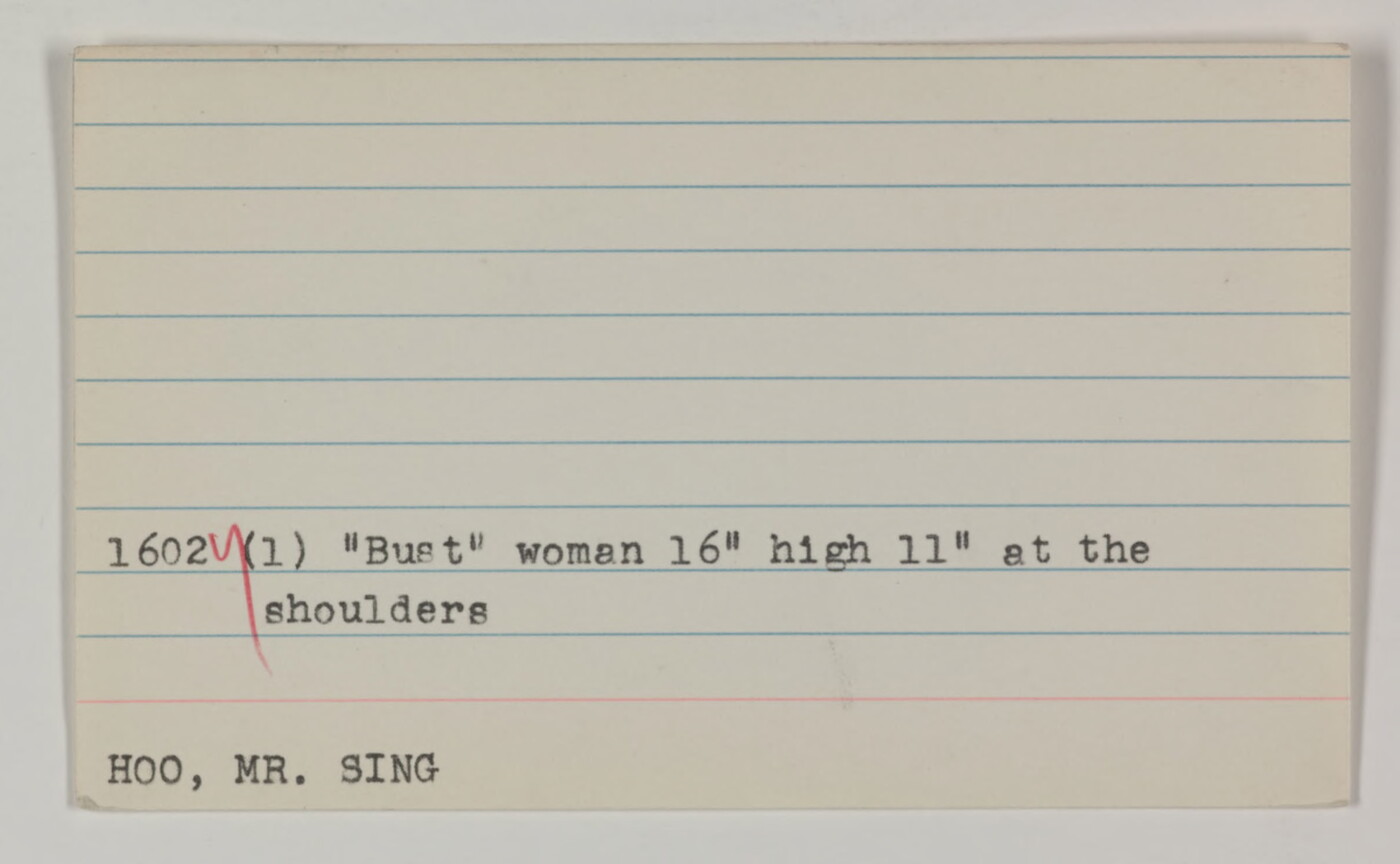 1602 (1) "Bust" woman 16" high 11" at the
shoulders
HOO, MR. SING